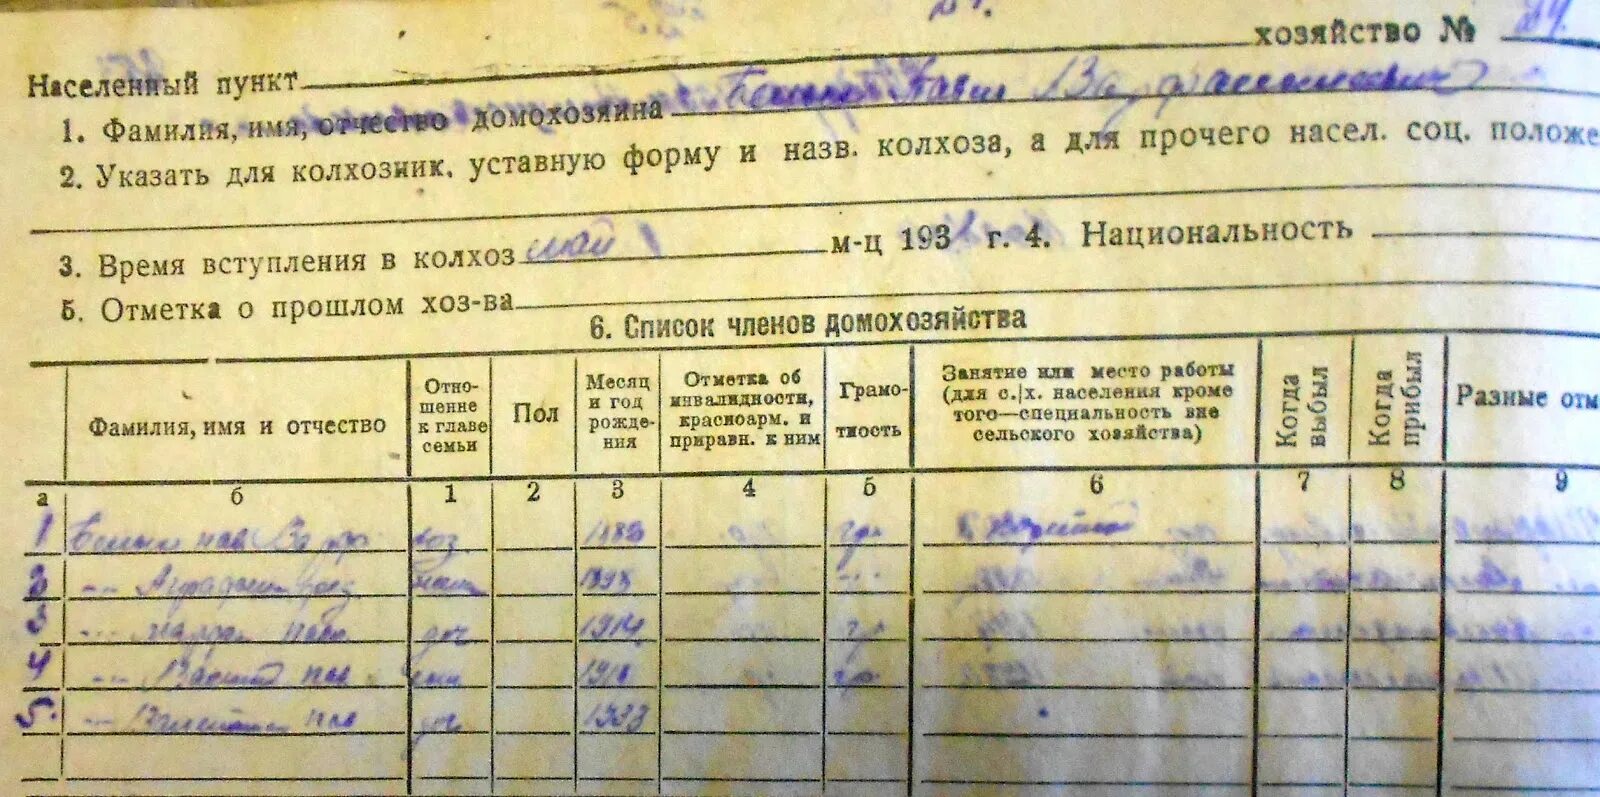 хозяйство № 24.
Населенный пункт
1. Фамилия, имя, отчество домохозяина Павел
2. Указать для колхозник. уставную форму и назв. колхоза, а для прочего насел. соц. положе
3. Время вступления в колхоз май м-ц 1931 г. 4. Национальность
5. Отметка о прошлом хоз-ва
6. Список членов домохозяйства
Фамилия, имя и отчество
Отно-
шение
к главе
семьи
Пол
Месяц
и год
рожде-
ния
Отметка об
инвалидности,
красноарм. и
приравн. к ним
Грамо-
тность
Занятие или место работы
(для с.|х. населения кроме
того—специальность вне
сельского хозяйства)
Когда
выбыл
Когда
прибыл
Разные отм
а б 1 2 3 4 5 6 7 8 9
1 пав хоз. гр.
2 -"- Аграфена 1893 -"-
3 -"- пав доч 1914 гр
4 -"- пав сын гр.
5. -"- Валентина пав доч 1933